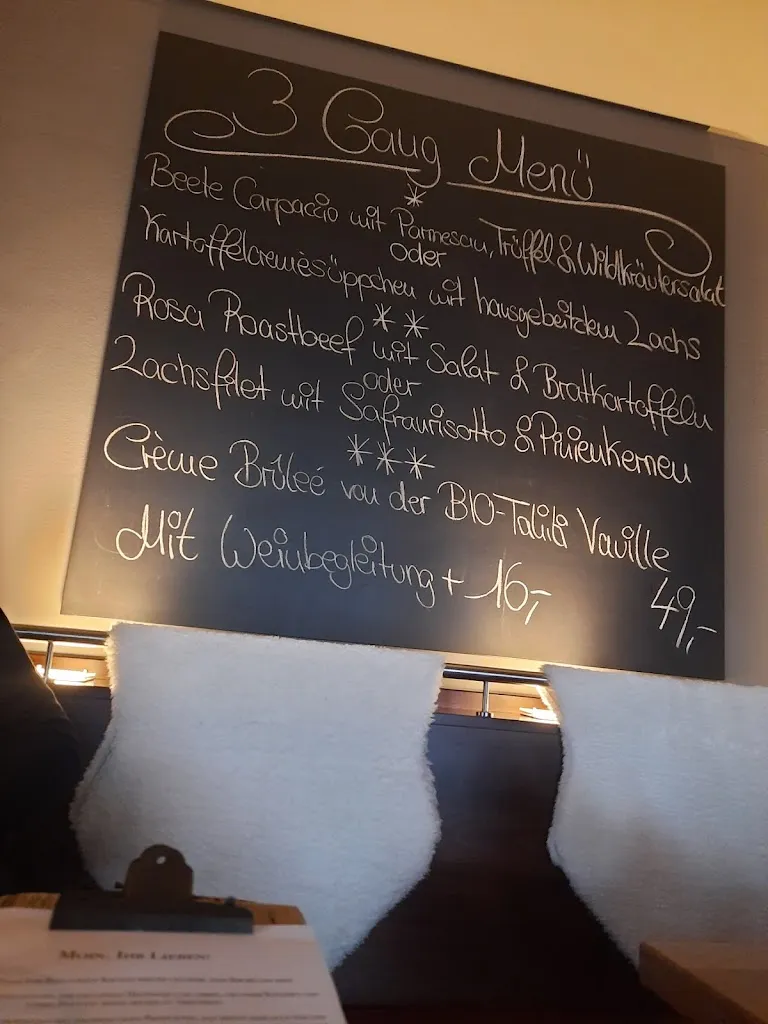 3 Gang Menü
*
Beete Carpaccio mit Parmesan, Trüffel & Wildkräutersalat
oder
Kartoffelcremèsüppchen mit hausgebeiztem Lachs
**
Rosa Roastbeef mit Salat & Bratkartoffeln
oder
Lachsfilet mit Safranrisotto & Pinienkernen
***
Crème Brûleé von der BIO-Tahiti Vanille
Mit Weinbegleitung + 16,- 49,-
Moin, Ihr Lieben!